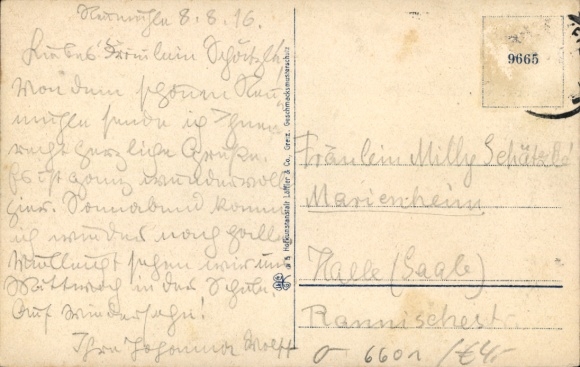 Neumühle 8.8.16.
Liebes Fräulein Schätzle!
Von dem schönen Neu
mühle sende ich Ihnen
recht herzliche Grüße.
Es ist ganz wundervoll
hier. Sonnabend komme
ich wieder nach Halle
Vielleicht sehen wir uns
Mittwoch in der Schule.
Auf Wiedersehn!
Ihre Johanna Wolff
Hofkunstanstalt Löffler & Co., Greiz. Geschmacksmusterschutz
9665
Fräulein Milly
Marienheim
Halle (Saale)
Rannischestr.
6601 /€4,-